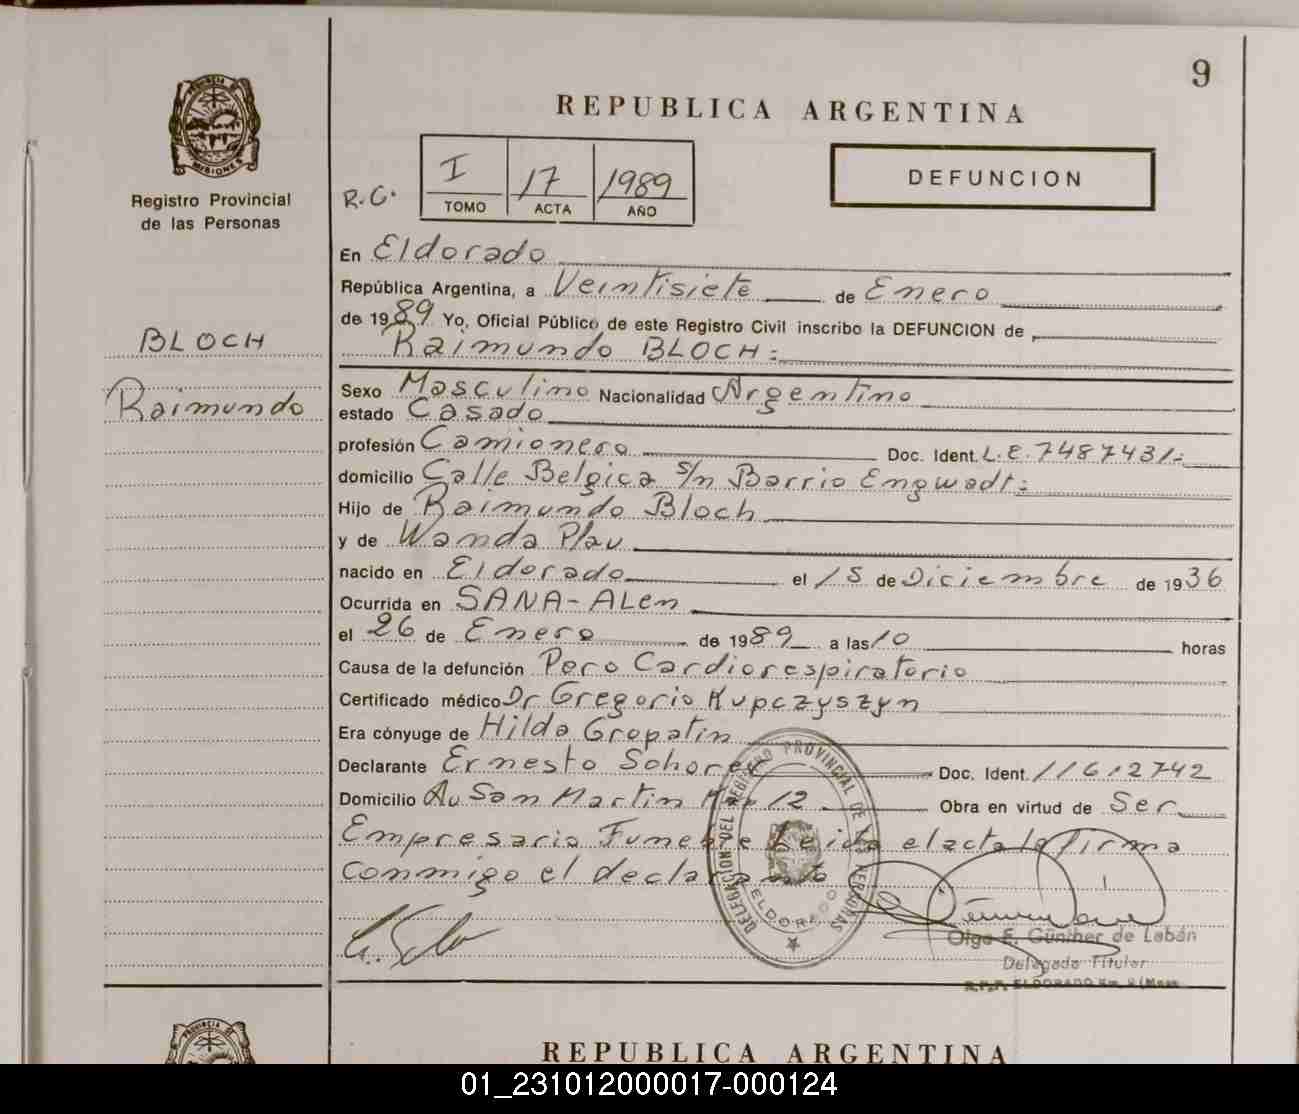 9
PROVINCIA DE
MISIONES
Registro Provincial
de las Personas
REPUBLICA ARGENTINA
R.C.
I 17 1989
TOMO ACTA AÑO
DEFUNCION
En Eldorado
República Argentina, a Veintisiete de Enero
de 1989 Yo, Oficial Público de este Registro Civil inscribo la DEFUNCION de
Raimundo BLOCH:
BLOCH
Raimundo
Sexo Masculino Nacionalidad Argentino
estado Casado
profesión Camionero Doc. Ident. L.E. 7487431.=
domicilio Calle Belgica s/n Barrio Engwadt:
Hijo de Raimundo Bloch
y de Wanda Plau
nacido en Eldorado el 15 de Diciembre de 1936
Ocurrida en SANA-ALen
el 26 de Enero de 1989 a las 10 horas
Causa de la defunción Pero Cardiorespiratorio
Certificado médico Dr Gregorio Kupczyszyn
Era cónyuge de Hilda Gropatin
Declarante Ernesto Schorer Doc. Ident. 11612742
Domicilio Av San Martin Km 12 Obra en virtud de Ser
Empresario Funebre Leida el acta la firma
conmigo el declarante
DELEGACION DEL REGISTRO PROVINCIAL DE LAS PERSONAS
ELDORADO
Olga E. Günther de Labán
Delegada Titular
R.P.P. ELDORADO Km.
PROVINCIA DE
REPUBLICA ARGENTINA
01_231012000017-000124